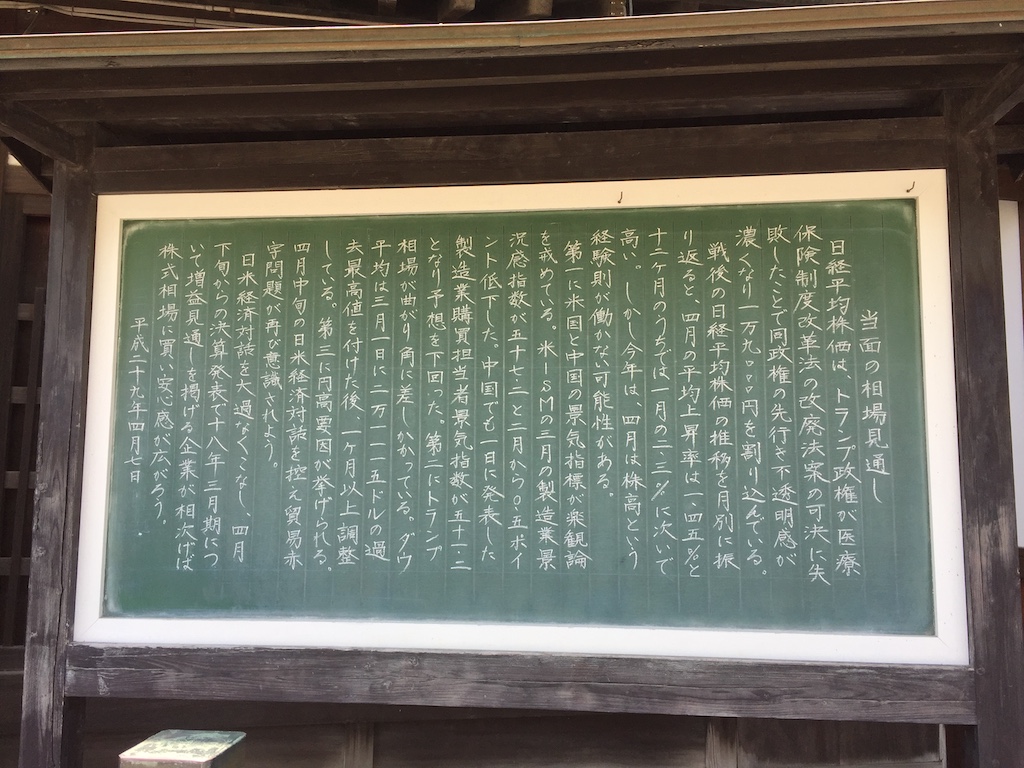 当面の相場見通し
日経平均株価は、トランプ政権が医療
保険制度改革法の改廃法案の可決に失
敗したことで同政権の先行き不透明感が
濃くなり一万九〇〇〇円を割り込んでいる。
戦後の日経平均株価の推移を月別に振
り返ると、四月の平均上昇率は一・四五%と
十二ヶ月のうちでは一月の二・三%に次いで
高い。しかし今年は、四月は株高という
経験則が働かない可能性がある。
第一に米国と中国の景気指標が楽観論
を戒めている。米ISMの三月の製造業景
況感指数が五十七・二と二月から〇・五ポイ
ント低下した。中国でも一日に発表した
製造業購買担当者景気指数が五十一・二
となり予想を下回った。第二にトランプ
相場が曲がり角に差しかかっている。ダウ
平均は三月一日に二万一一一五ドルの過
去最高値を付けた後、一ヶ月以上調整
している。第三に円高要因が挙げられる。
四月中旬の日米経済対話を控え貿易赤
字問題が再び意識されよう。
日米経済対話を大過なくこなし、四月
下旬からの決算発表で十八年三月期につ
いて増益見通しを掲げる企業が相次げば
株式相場に買い安心感が広がろう。
平成二十九年四月七日